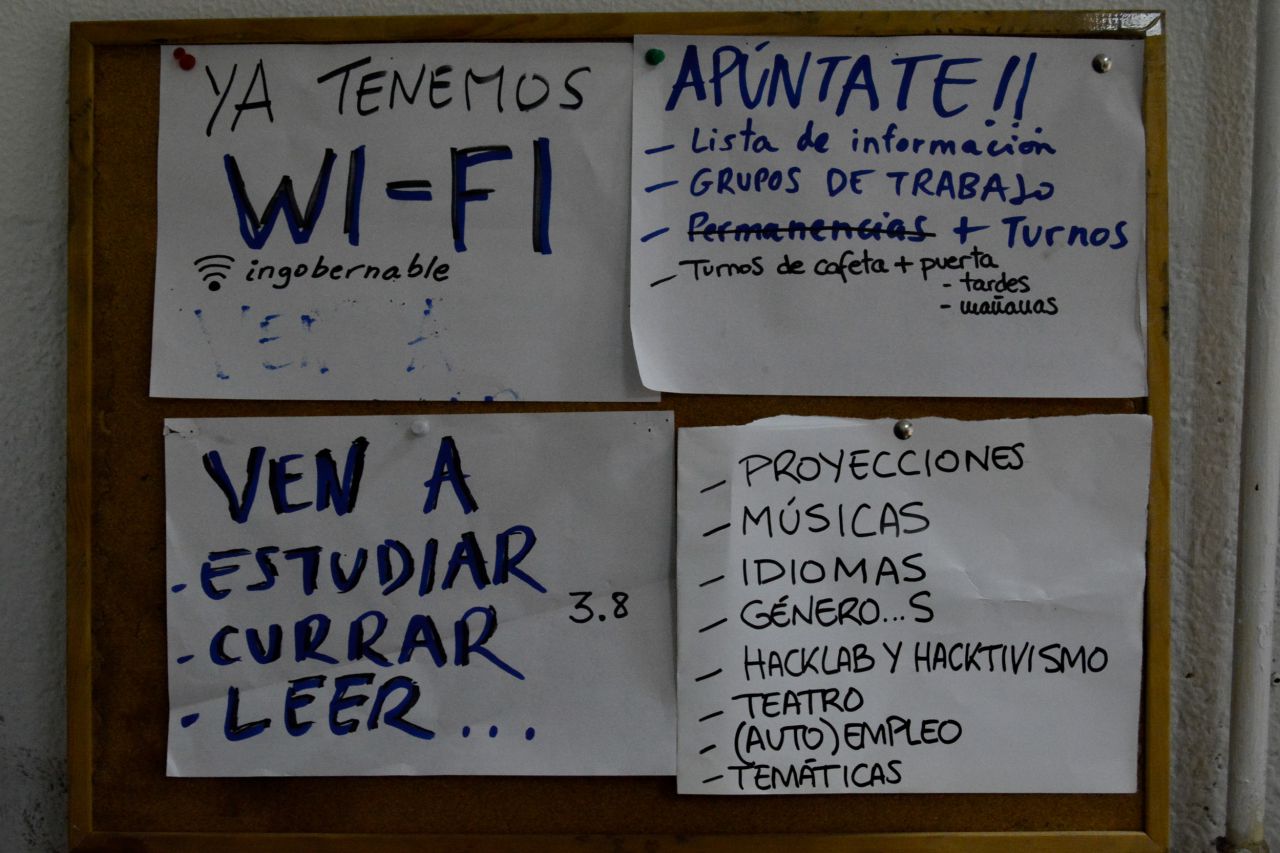 YA TENEMOS
WI-FI
ingobernable
VEN A
APÚNTATE!!
- Lista de información
- GRUPOS DE TRABAJO
- Permanencias + Turnos
- Turnos de cafeta + puerta
- tardes
- mañanas
VEN A
- ESTUDIAR
- CURRAR
- LEER...
3.8
- PROYECCIONES
- MÚSICAS
- IDIOMAS
- GÉNERO...S
- HACKLAB Y HACKTIVISMO
- TEATRO
- (AUTO)EMPLEO
- TEMÁTICAS